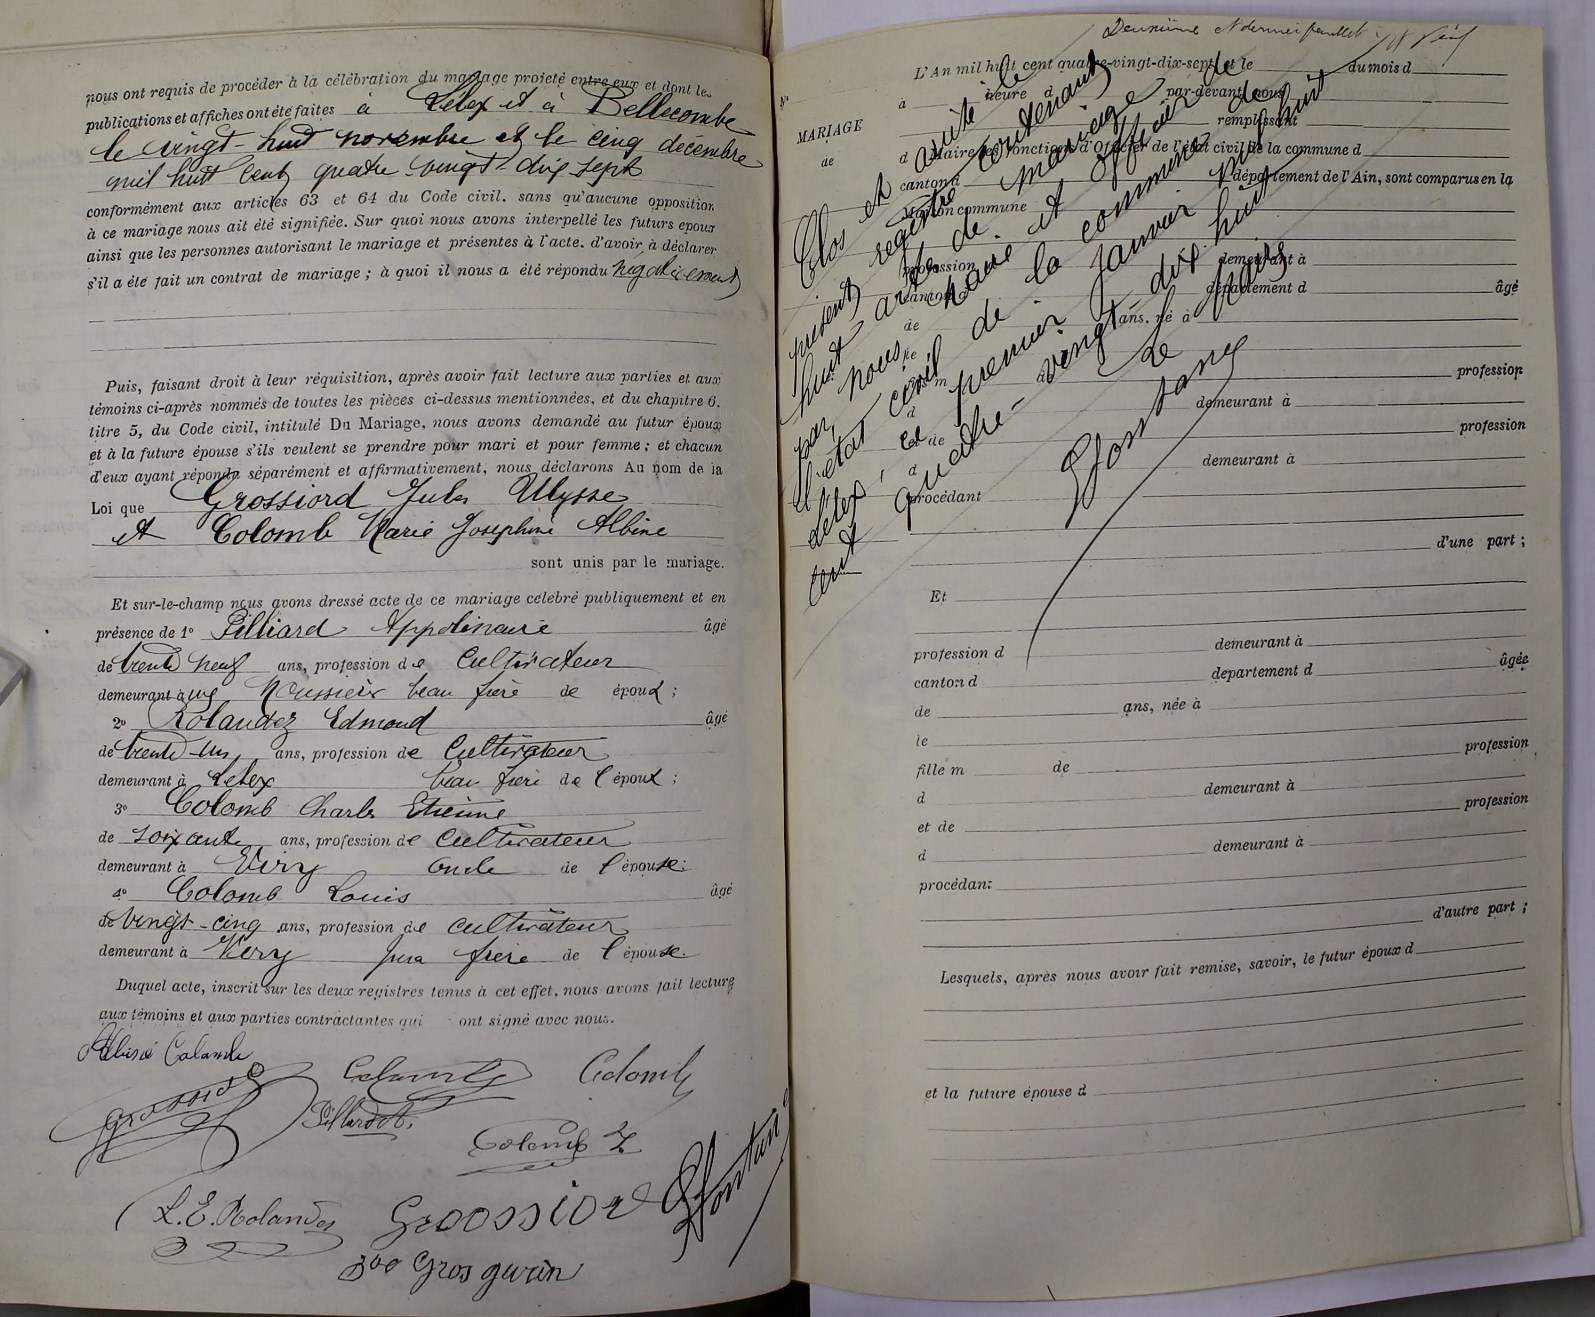 nous ont requis de procéder à la célébration du mariage projeté entre eux et dont les
publications et affiches ont été faites à Lélex et à Bellecombe
le vingt-huit novembre et le cinq décembre
mil huit cent quatre vingt-dix sept
conformément aux articles 63 et 64 du Code civil. sans qu'aucune opposition
à ce mariage nous ait été signifiée. Sur quoi nous avons interpellé les futurs epoux
ainsi que les personnes autorisant le mariage et présentes à l'acte. d'avoir à déclarer
s'il a été fait un contrat de mariage ; à quoi il nous a été répondu négativement
Puis, faisant droit à leur réquisition, après avoir fait lecture aux parties et aux
témoins ci-après nommés de toutes les pièces ci-dessus mentionnées, et du chapitre 6,
titre 5, du Code civil, intitulé Du Mariage, nous avons demandé au futur époux
et à la future épouse s'ils veulent se prendre pour mari et pour femme ; et chacun
d'eux ayant répondu séparément et affirmativement, nous déclarons Au nom de la
Loi que Grossiord Jules Ulysse
et Colomb Marie Joséphine Albine
sont unis par le mariage.
Et sur-le-champ nous avons dressé acte de ce mariage celebré publiquement et en
présence de 1° Pilliard Appolinaire âgé
de trente neuf ans, profession de cultivateur
demeurant aux Moussières beau frère de époux ;
2° Rolandez Edmond âgé
de trente-un ans, profession de cultivateur
demeurant à Lélex beau frère de l'époux ;
3° Colomb Charles Etienne
de soixante ans, profession de cultivateur
demeurant à Viry oncle de l'épouse;
4° Colomb Louis âgé
de vingt-cinq ans, profession de cultivateur
demeurant à Viry Jura frère de l'épouse.
Duquel acte, inscrit sur les deux registres tenus à cet effet, nous avons fait lecture
aux témoins et aux parties contractantes qui ont signé avec nous.
Albine Colomb
Grossiord
Colomb
Colomb
Pilliard A.
Colomb
L. E. Rolandez
Grossiord
Gros gurin
Deuxième et dernier feuillet
L'An mil huit cent quatre-vingt-dix-sept et le du mois d
à heure d par-devant nous
MARIAGE
remplissant
de
d Maire les fonctions d'Officier de l'état civil de la commune d
canton d département de l'Ain, sont comparus en la
Maison commune
profession demeurant à
canton d département d âgé
de ans, né à
le
fils m de profession
d demeurant à
et de profession
d demeurant à
procédant
d'une part ;
Clos et arrêté le
présent registre contenant
huit actes de mariage
par nous maire et officier de
l'état civil de la commune de
Lélex, le premier janvier mil huit
cent quatre-vingt-dix-huit
Le Maire
Et
profession d demeurant à
canton d departement d âgée
de ans, née à
le
fille m de profession
d demeurant à
et de profession
d demeurant à
procédant
d'autre part ;
Lesquels, après nous avoir fait remise, savoir, le futur époux d
et la future épouse d